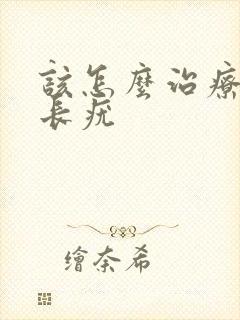 該怎麼治療
長疣
繪奈希